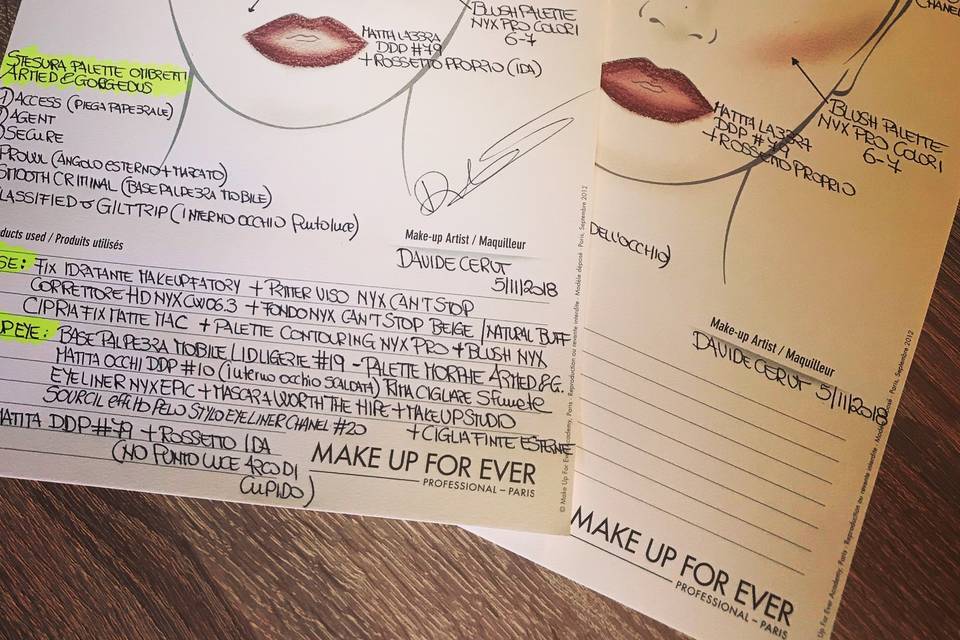 BLUSH PALETTE
NYX PRO COLORI
6-7
MATITA LABBRA
DDP #79
+ ROSSETTO PROPRIO (IDA)
STESURA PALETTE OMBRETTI
ARTIED & GORGEOUS
1) ACCESS (PIEGA PAPEBRALE)
AGENT
SECURE
PROWL (ANGOLO ESTERNO + MARCATO)
SMOOTH CRIMINAL (BASE PALPEBRA MOBILE)
CLASSIFIED & GILTTRIP (INTERNO OCCHIO PUNTO LUCE)
ducts used / Produits utilisés
Make-up Artist / Maquilleur
DAVIDE CERUT
5/11/2018
SE: FIX IDRATANTE MAKEUPFATORY + PRIMER VISO NYX CAN'T STOP
CORRETTORE HD NYX CW06.3 + FONDO NYX CAN'T STOP BEIGE / NATURAL BUFF
CIPRIA FIX MATTE MAC + PALETTE CONTOURING NYX PRO + BLUSH NYX
P EYE: BASE PALPEBRA MOBILE LIDLIGERIE #19 - PALETTE MORPHE ARTIED & G.
MATITA OCCHI DDP #10 (interno occhio SALDATA) RIMA CIGLIARE SFUMATE
EYELINER NYX EPIC + MASCARA WORTH THE HIPE + MAKEUP STUDIO
SOURCIL effetto PELO STYLO EYELINER CHANEL #20
+ CIGLIA FINTE ESTERNE
MATITA DDP #79 + ROSSETTO IDA
(NO PUNTO LUCE ARCO DI
CUPIDO)
MAKE UP FOR EVER
PROFESSIONAL – PARIS
© Make Up For Ever Academy, Paris - Reproduction ou revente interdite - Modèle déposé - Paris, Septembre 2012
CHANEL
BLUSH PALETTE
NYX PRO COLORI
6-7
MATITA LABBRA
DDP #79
+ ROSSETTO PROPRIO
DELL'OCCHIO)
Make-up Artist / Maquilleur
DAVIDE CERUT 5/11/2018
MAKE UP FOR EVER
PROFESSIONAL – PARIS
Up For Ever Academy, Paris - Reproduction ou revente interdite - Modèle déposé - Paris, Septembre 2012